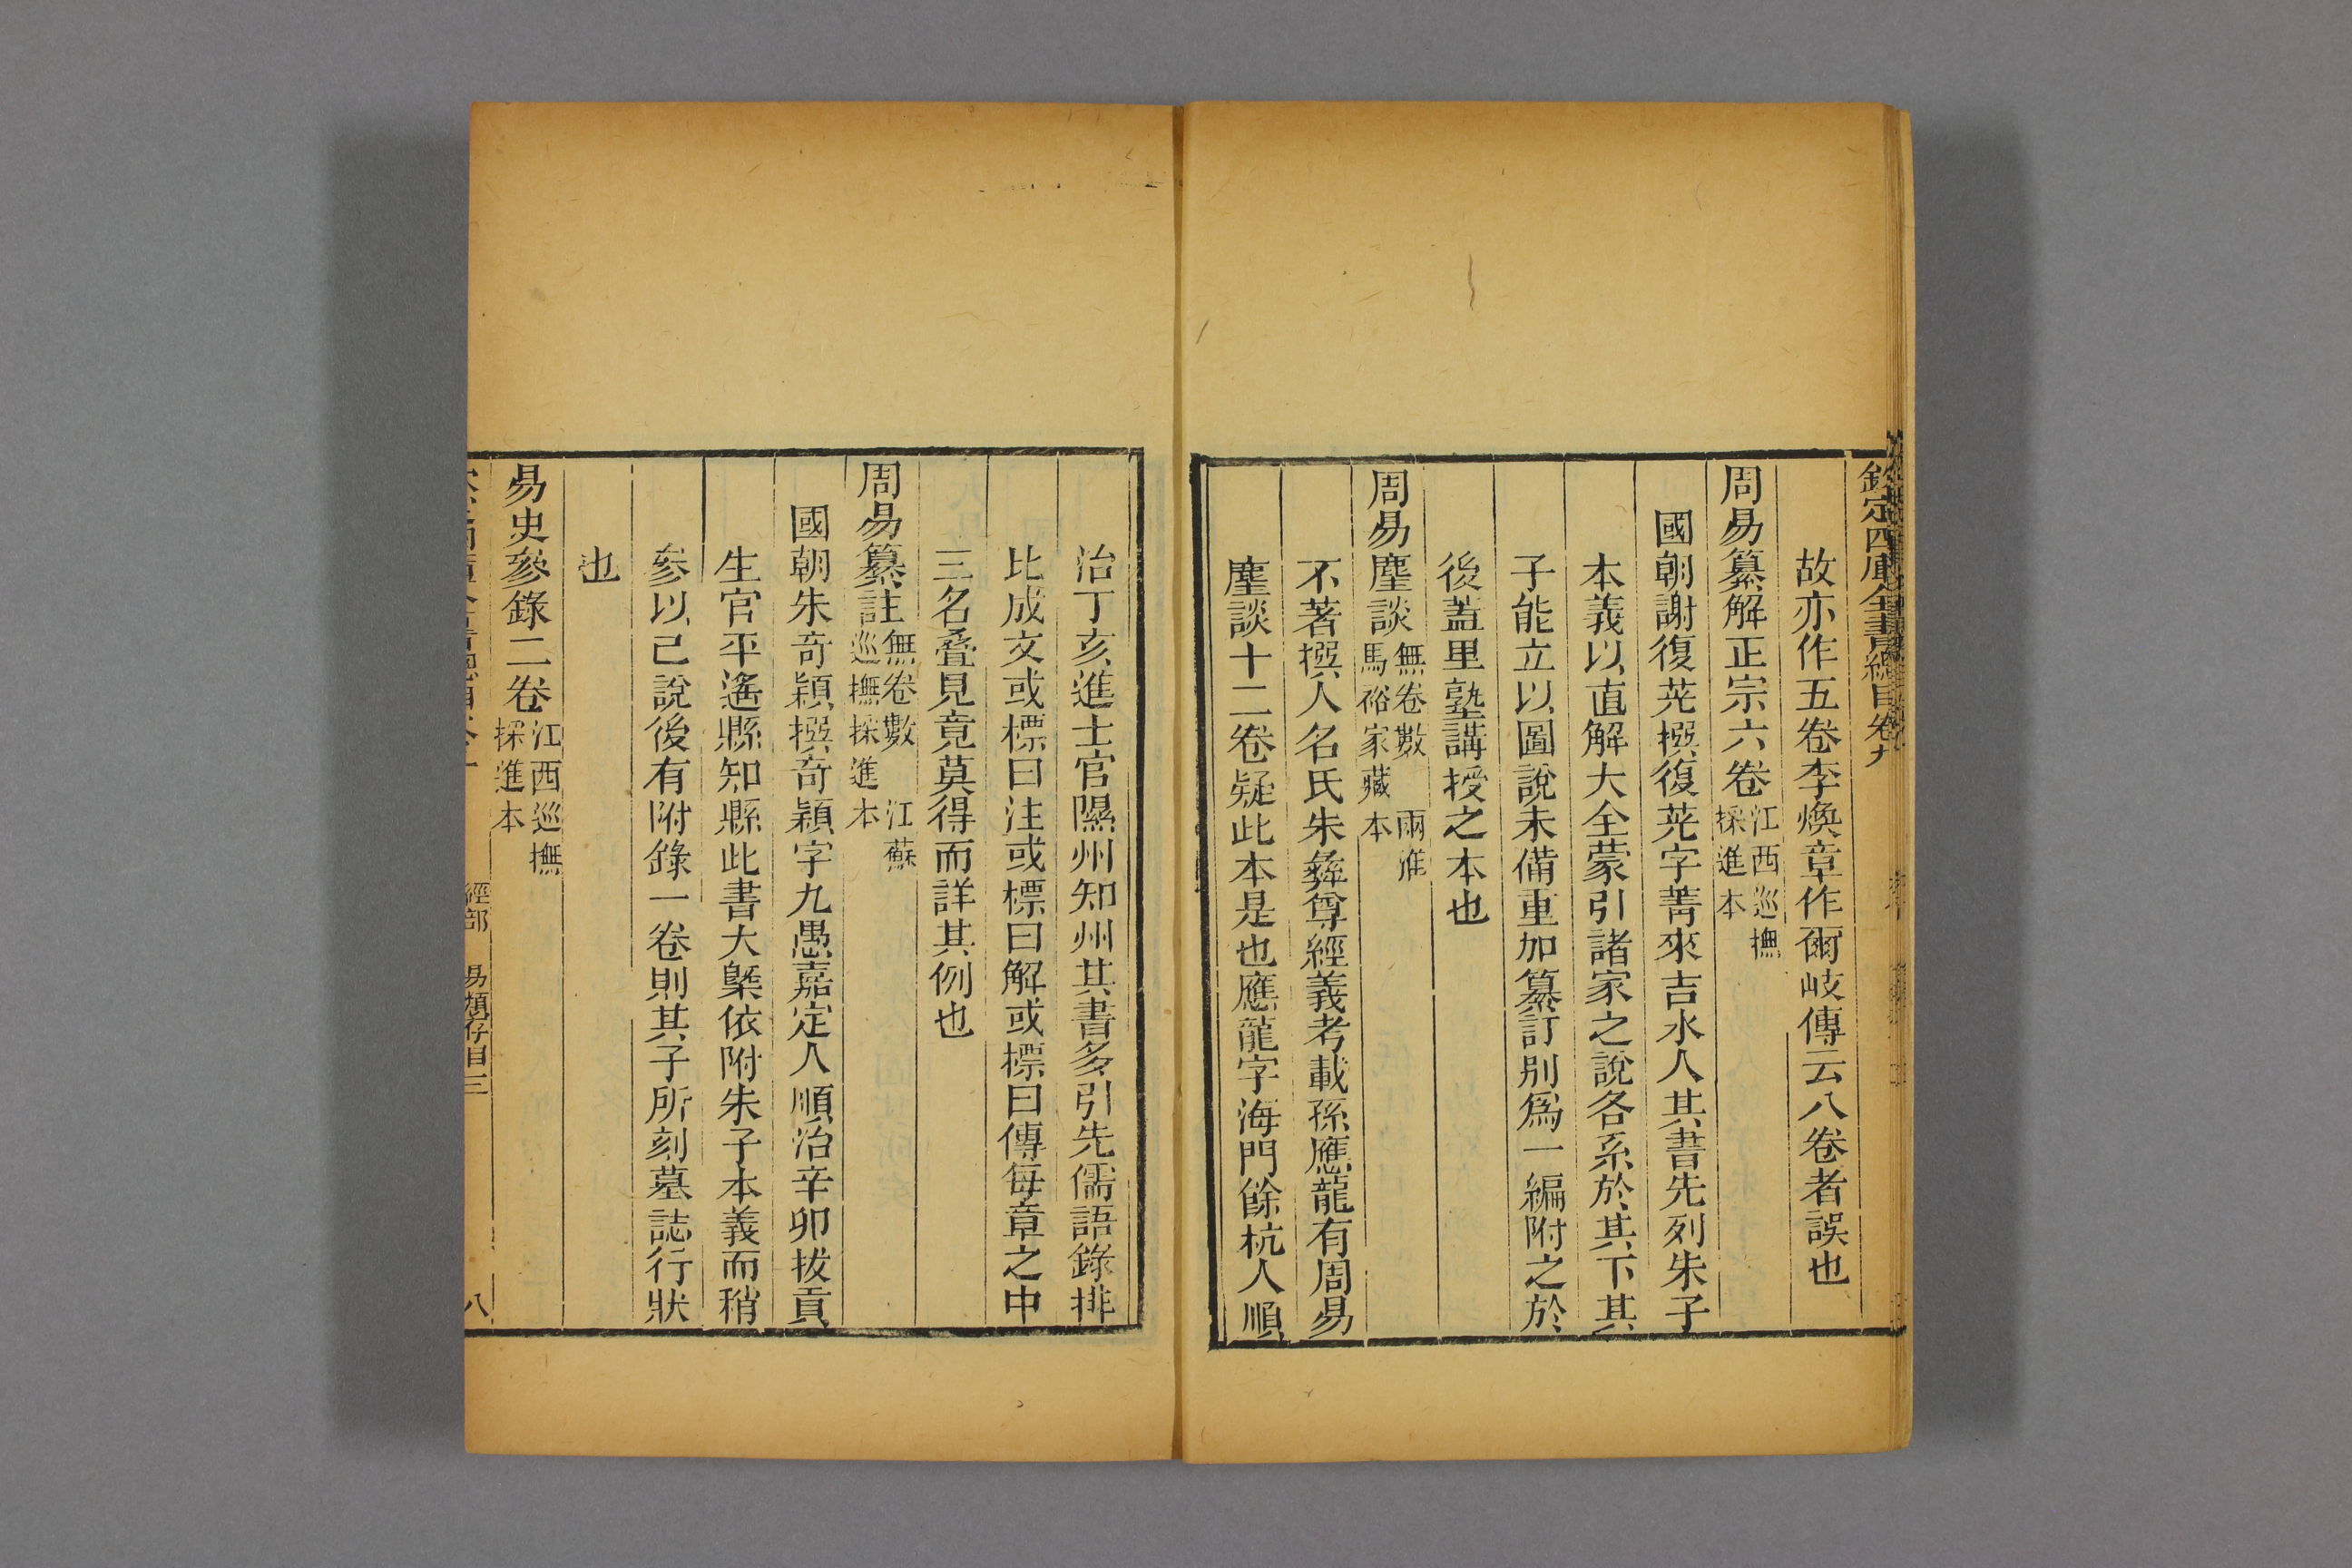 欽定四庫全書總目卷九
故亦作五卷李煥章作爾岐傳云八卷者誤也
周易纂解正宗六卷江西巡撫採進本
國朝謝復茫撰復茫字菁來吉水人其書先列朱子
本義以直解大全蒙引諸家之說各系於其下其
子能立以圖說未備重加纂訂別爲一編附之於
後蓋里塾講授之本也
周易塵談無卷數兩淮馬裕家藏本
不著撰人名氏朱彝尊經義考載孫應龍有周易
塵談十二卷疑此本是也應龍字海門餘杭人順
治丁亥進士官隰州知州其書多引先儒語錄排
比成文或標曰注或標曰解或標曰傳每章之中
三名叠見竟莫得而詳其例也
周易纂註無卷數江蘇巡撫採進本
國朝朱奇穎撰奇穎字九愚嘉定人順治辛卯拔貢
生官平遙縣知縣此書大槩依附朱子本義而稍
參以己說後有附錄一卷則其子所刻墓誌行狀
也
易史參錄二卷江西巡撫採進本
經部 易類存目三 八